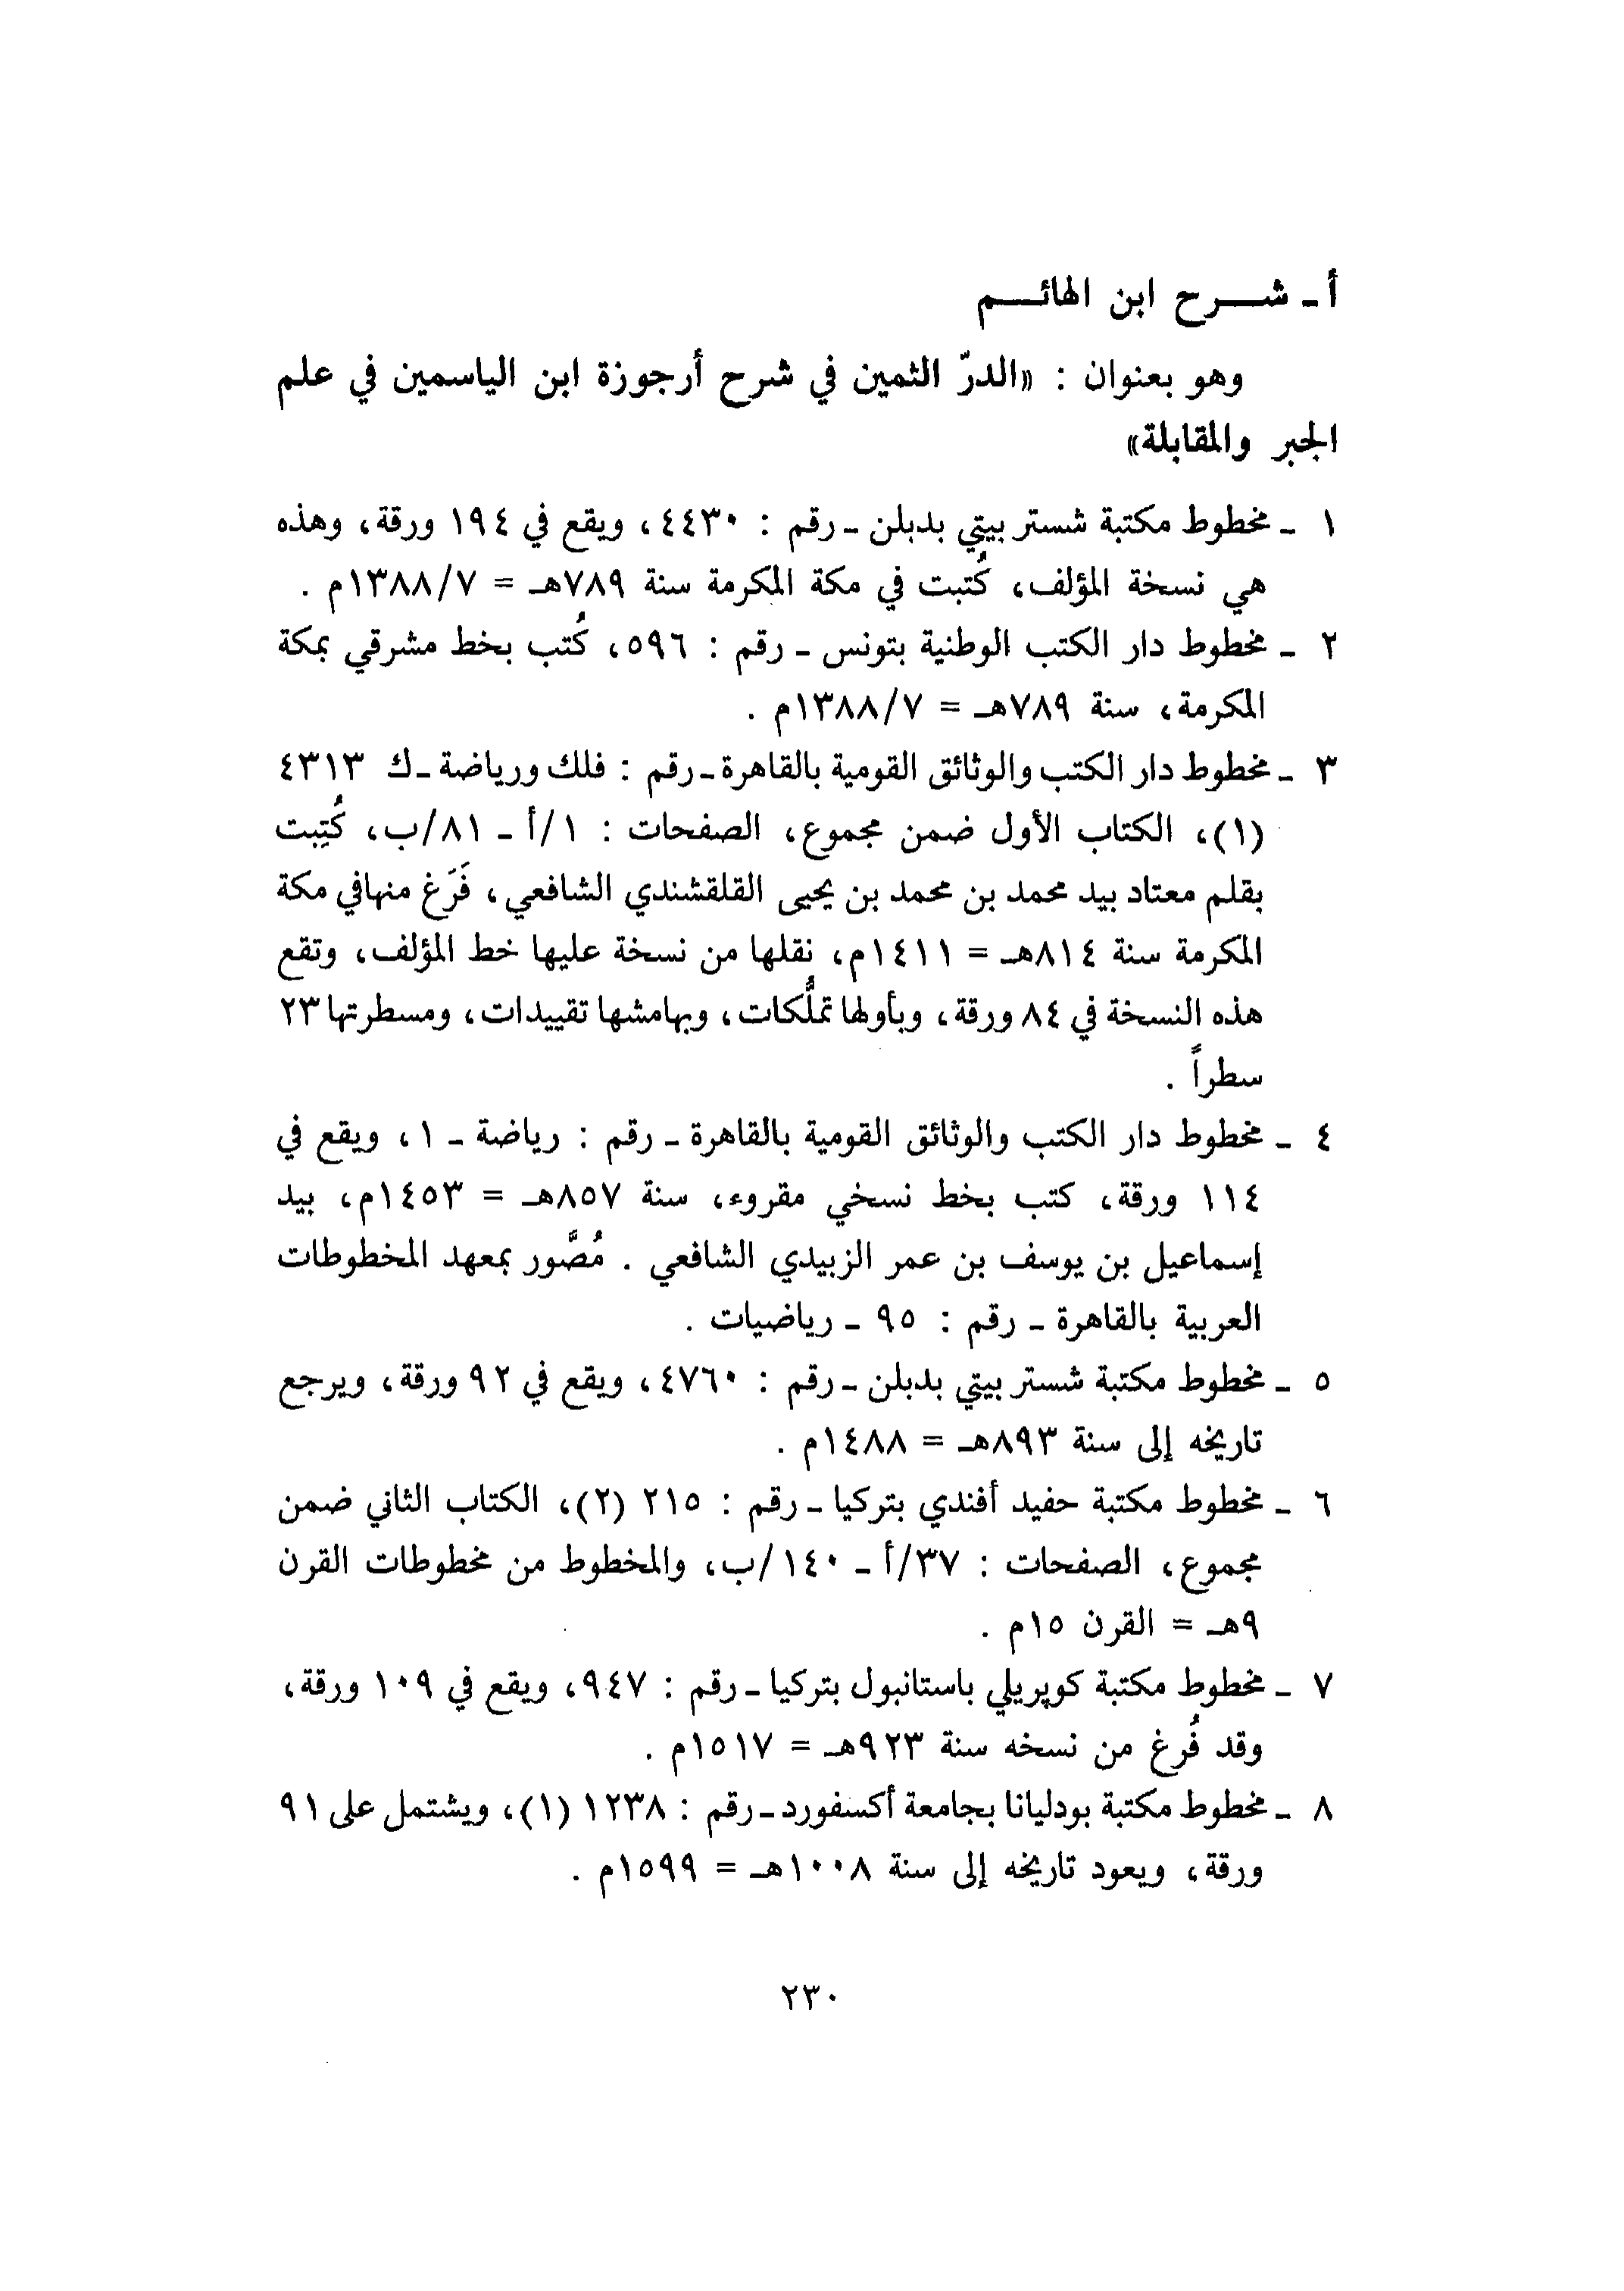 أ ـ شـــرح ابن الهائـــم
وهو بعنوان : «الدرّ الثمين في شرح أرجوزة ابن الياسمين في علم
الجبر والمقابلة»
١ ـ مخطوط مكتبة شستر بيتي بدبلن ـ رقم : ٤٤٣٠، ويقع في ١٩٤ ورقة، وهذه
هي نسخة المؤلف، كُتبت في مكة المكرمة سنة ٧٨٩هـ = ١٣٨٨/٧م .
٢ ـ مخطوط دار الكتب الوطنية بتونس ـ رقم : ٥٩٦، كُتب بخط مشرقي بمكة
المكرمة، سنة ٧٨٩هـ = ١٣٨٨/٧م .
٣ ـ مخطوط دار الكتب والوثائق القومية بالقاهرة ـ رقم : فلك ورياضة ـ ك ٤٣١٣
(١)، الكتاب الأول ضمن مجموع، الصفحات : ١/أ ـ ٨١/ب، كُتِبت
بقلم معتاد بيد محمد بن محمد بن يحيى القلقشندي الشافعي، فَرَغ منهافي مكة
المكرمة سنة ٨١٤هـ = ١٤١١م، نقلها من نسخة عليها خط المؤلف، وتقع
هذه النسخة في ٨٤ ورقة، وبأولها تملُّكات، وبهامشها تقييدات، ومسطرتها ٢٣
سطراً .
٤ ـ مخطوط دار الكتب والوثائق القومية بالقاهرة ـ رقم : رياضة ـ ١، ويقع في
١١٤ ورقة، كتب بخط نسخي مقروء، سنة ٨٥٧هـ = ١٤٥٣م، بيد
إسماعيل بن يوسف بن عمر الزبيدي الشافعي . مُصَّور بمعهد المخطوطات
العربية بالقاهرة ـ رقم : ٩٥ ـ رياضيات .
٥ ـ مخطوط مكتبة شستر بيتي بدبلن ـ رقم : ٤٧٦٠، ويقع في ٩٢ ورقة، ويرجع
تاريخه إلى سنة ٨٩٣هـ = ١٤٨٨م .
٦ ـ مخطوط مكتبة حفيد أفندي بتركيا ـ رقم : ٢١٥ (٢)، الكتاب الثاني ضمن
مجموع، الصفحات : ٣٧/أ ـ ١٤٠/ب، والمخطوط من مخطوطات القرن
٩هـ = القرن ١٥م .
٧ ـ مخطوط مكتبة كوپريلي باستانبول بتركيا ـ رقم : ٩٤٧، ويقع في ١٠٩ ورقة،
وقد فُرغ من نسخه سنة ٩٢٣هـ = ١٥١٧م .
٨ ـ مخطوط مكتبة بودليانا بجامعة أكسفورد ـ رقم : ١٢٣٨ (١)، ويشتمل على ٩١
ورقة، ويعود تاريخه إلى سنة ١٠٠٨هـ = ١٥٩٩م .
٢٣٠